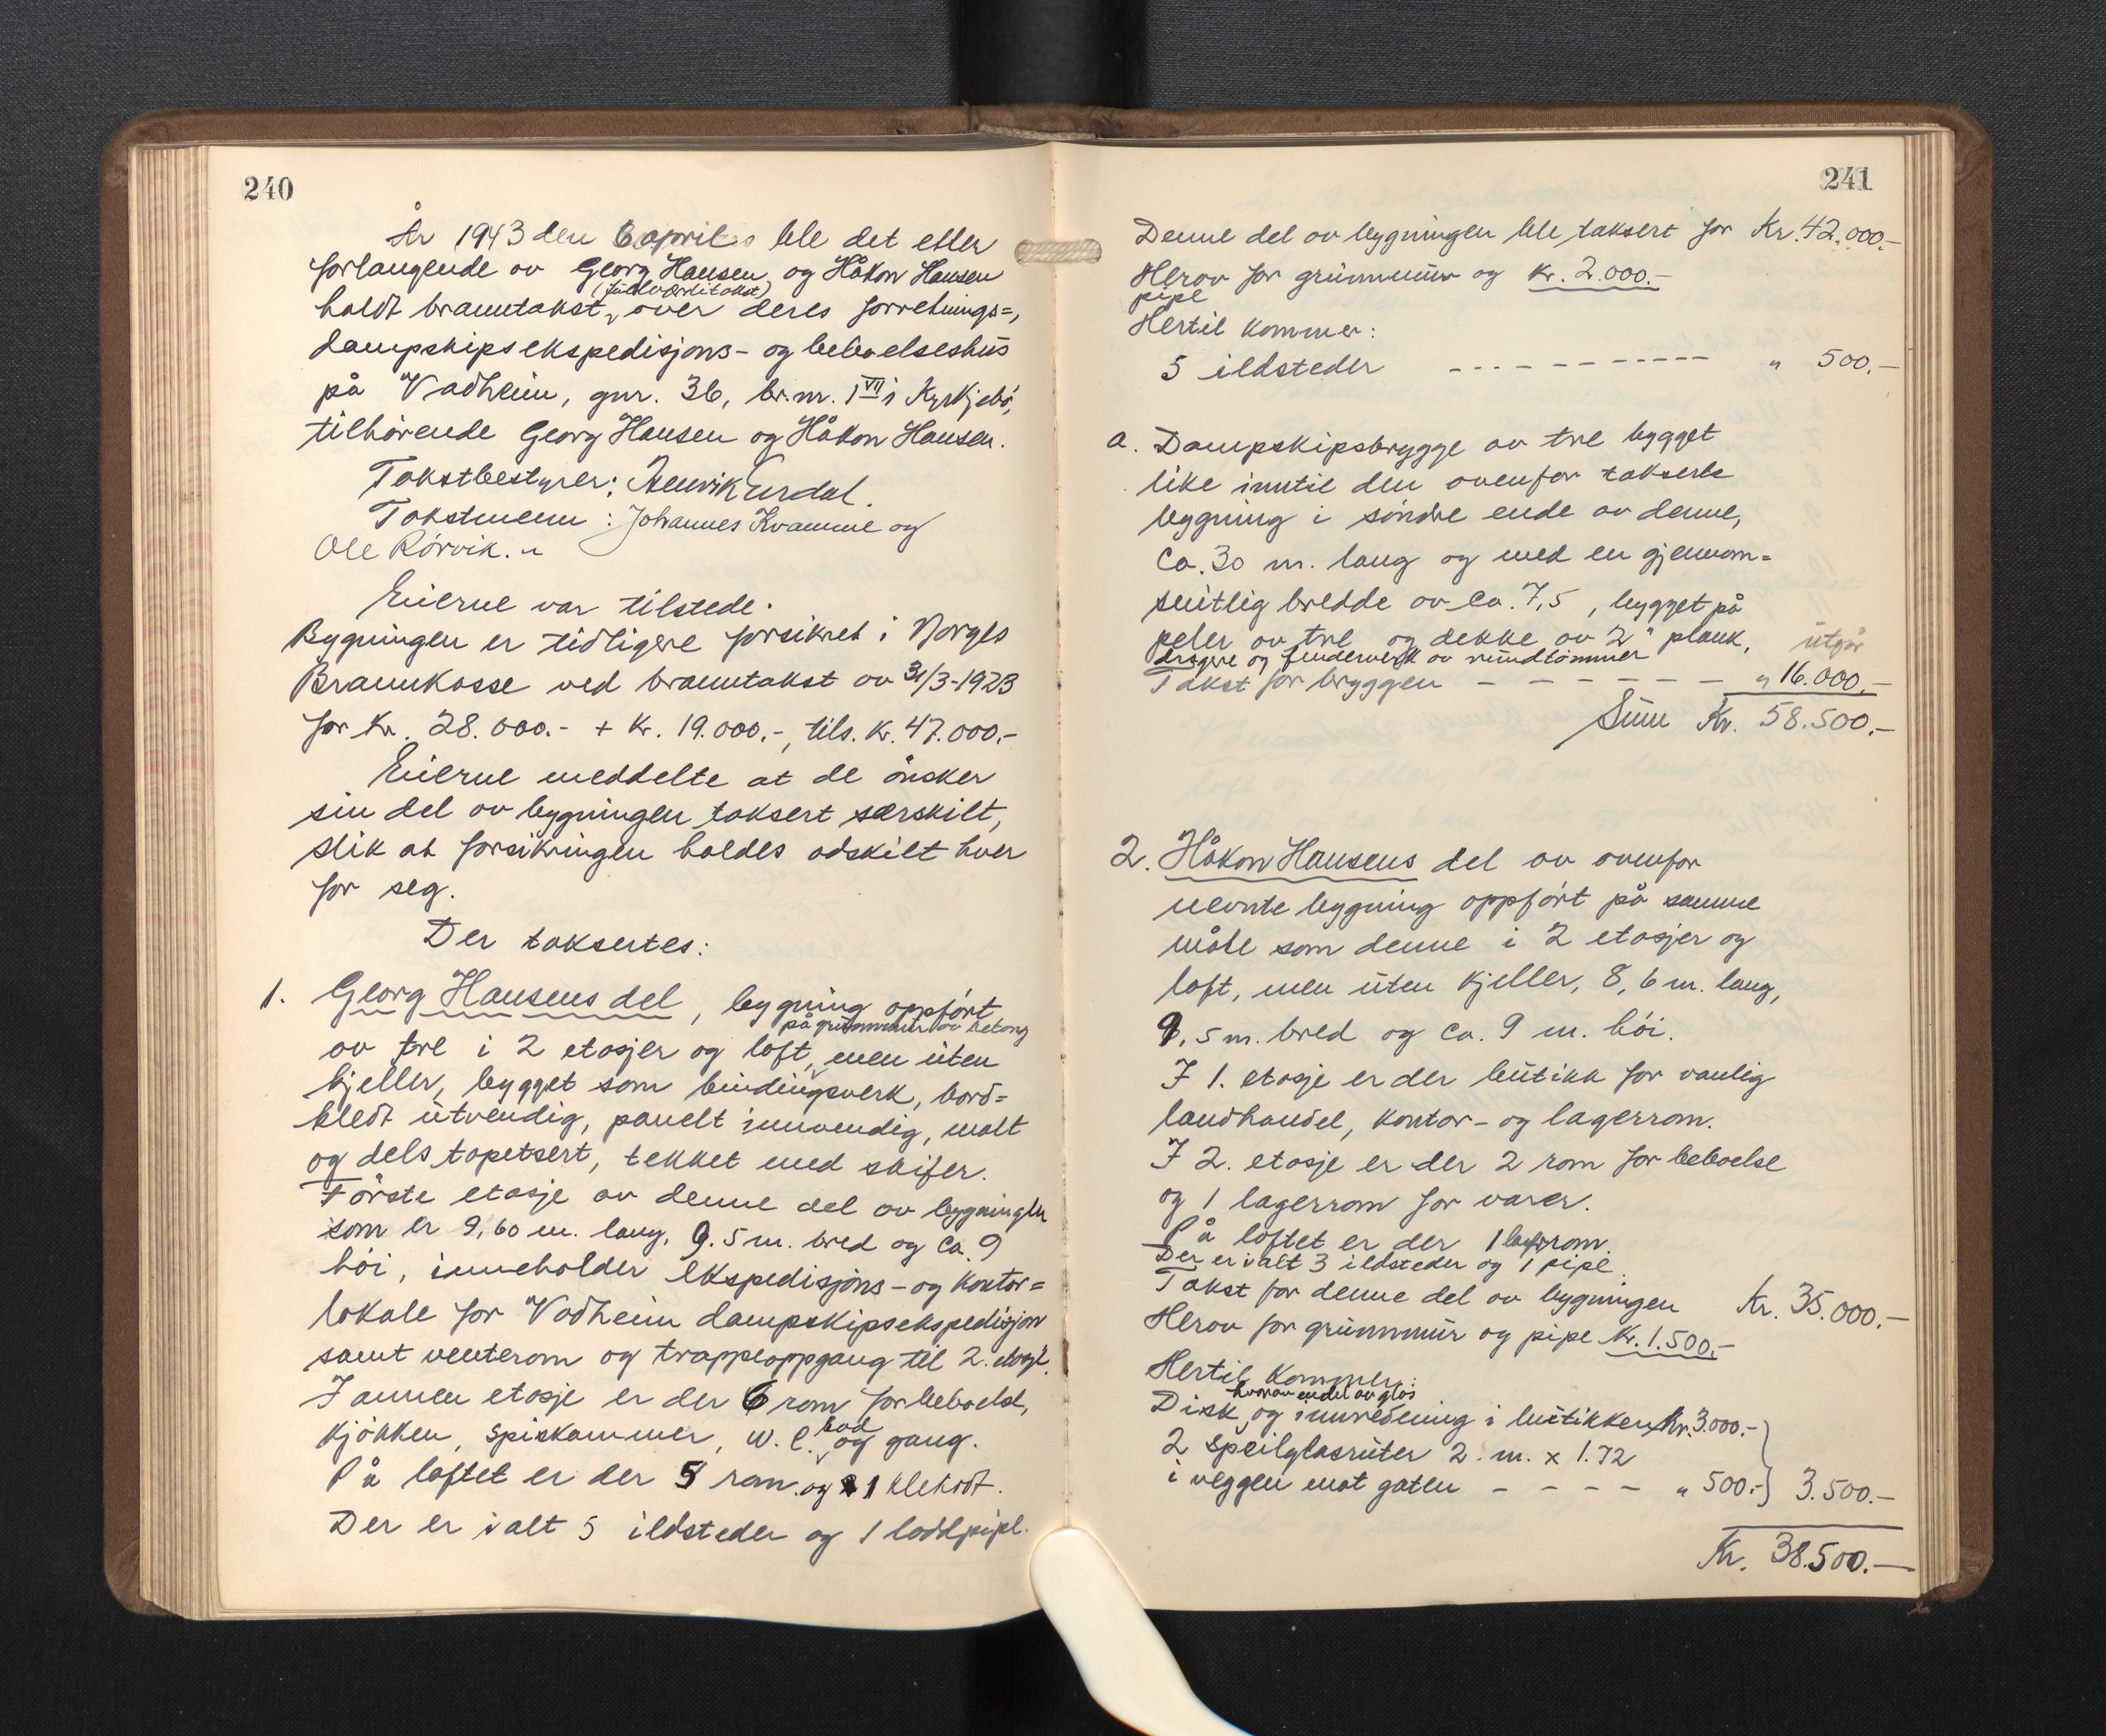 240
År 1943 den 6 april ble det etter
forlangende av Georg Hansen og Håkon Hansen
(fullverditakst)
holdt branntakst over deres forretnings=,
dampskipsekspedisjons- og beboelseshus
på Vadheim, gnr. 36, br.nr. 1 VII i Kyrkjebø,
tilhørende Georg Hansen og Håkon Hansen.
Takstbestyrer: Henrik Eurdal.
Takstmenn: Johannes Kvamme og
Ole Rørvik.
Eierne var tilstede.
Bygningen er tidligere forsikret i Norges
Brannkasse ved branntakst av 31/3-1923
for Kr. 28.000.- + Kr. 19.000.-, tils. Kr. 47.000.-
Eierne meddelte at de ønsker
sin del av bygningen taksert særskilt,
slik at forsikringen holdes adskilt hver
for seg.
Der taksertes:
1. Georg Hansens del, bygning oppført
på grunnmur av betong
av tre i 2 etasjer og loft, men uten
kjeller, bygget som bindingsverk, bord=
kledt utvendig, panelt innvendig, malt
og dels tapetsert, tekket med skifer.
Første etasje av denne del av bygningen
som er 9,60 m. lang, 9.5 m. bred og ca. 9
høi, inneholder ekspedisjons- og kontor=
lokale for Vadheim dampskipsekspedisjon
samt venterom og trappeoppgang til 2. etasje.
I annen etasje er der 6 rom for beboelse,
bod
kjøkken, spiskammer, w.c. og gang.
På loftet er der 5 rom og 1 klekott.
Der er i alt 5 ildsteder og 1 loddpipe.
241
Denne del av bygningen ble taksert for Kr. 42.000.-
Herav for grunnmur og Kr. 2.000.-
pipe
Hertil kommer:
5 ildsteder - - - - - - - - - " 500.-
a. Dampskipsbrygge av tre bygget
like inntil den ovenfor takserte
bygning i søndre ende av denne,
ca. 30 m. lang og med en gjennom=
snitlig bredde av ca. 7,5, bygget på
peler av tre og dekke av 2" plank, utgår
dragere og fenderverk av rundtømmer
Takst for bryggen - - - - - - " 16.000.-
Sum Kr. 58.500.-
2. Håkon Hansens del av ovenfor
nevnte bygning oppført på samme
måte som denne i 2 etasjer og
loft, men uten kjeller, 8,6 m. lang,
9,5 m. bred og ca. 9 m. høi.
I 1. etasje er der butikk for vanlig
landhandel, kontor- og lagerrom.
I 2. etasje er der 2 rom for beboelse
og 1 lagerrom for varer.
På loftet er der 1 lagerrom.
Der er i alt 3 ildsteder og 1 pipe.
Takst for denne del av bygningen Kr. 35.000.-
Herav for grunnmur og pipe Kr. 1.500.-
Hertil kommer:
hvorav endel av glas
Disk og innredning i butikken Kr. 3.000.-
2 speilglasruter 2 m. x 1.72
i veggen mot gaten - - - - " 500.-} 3.500.-
Kr. 38.500.-